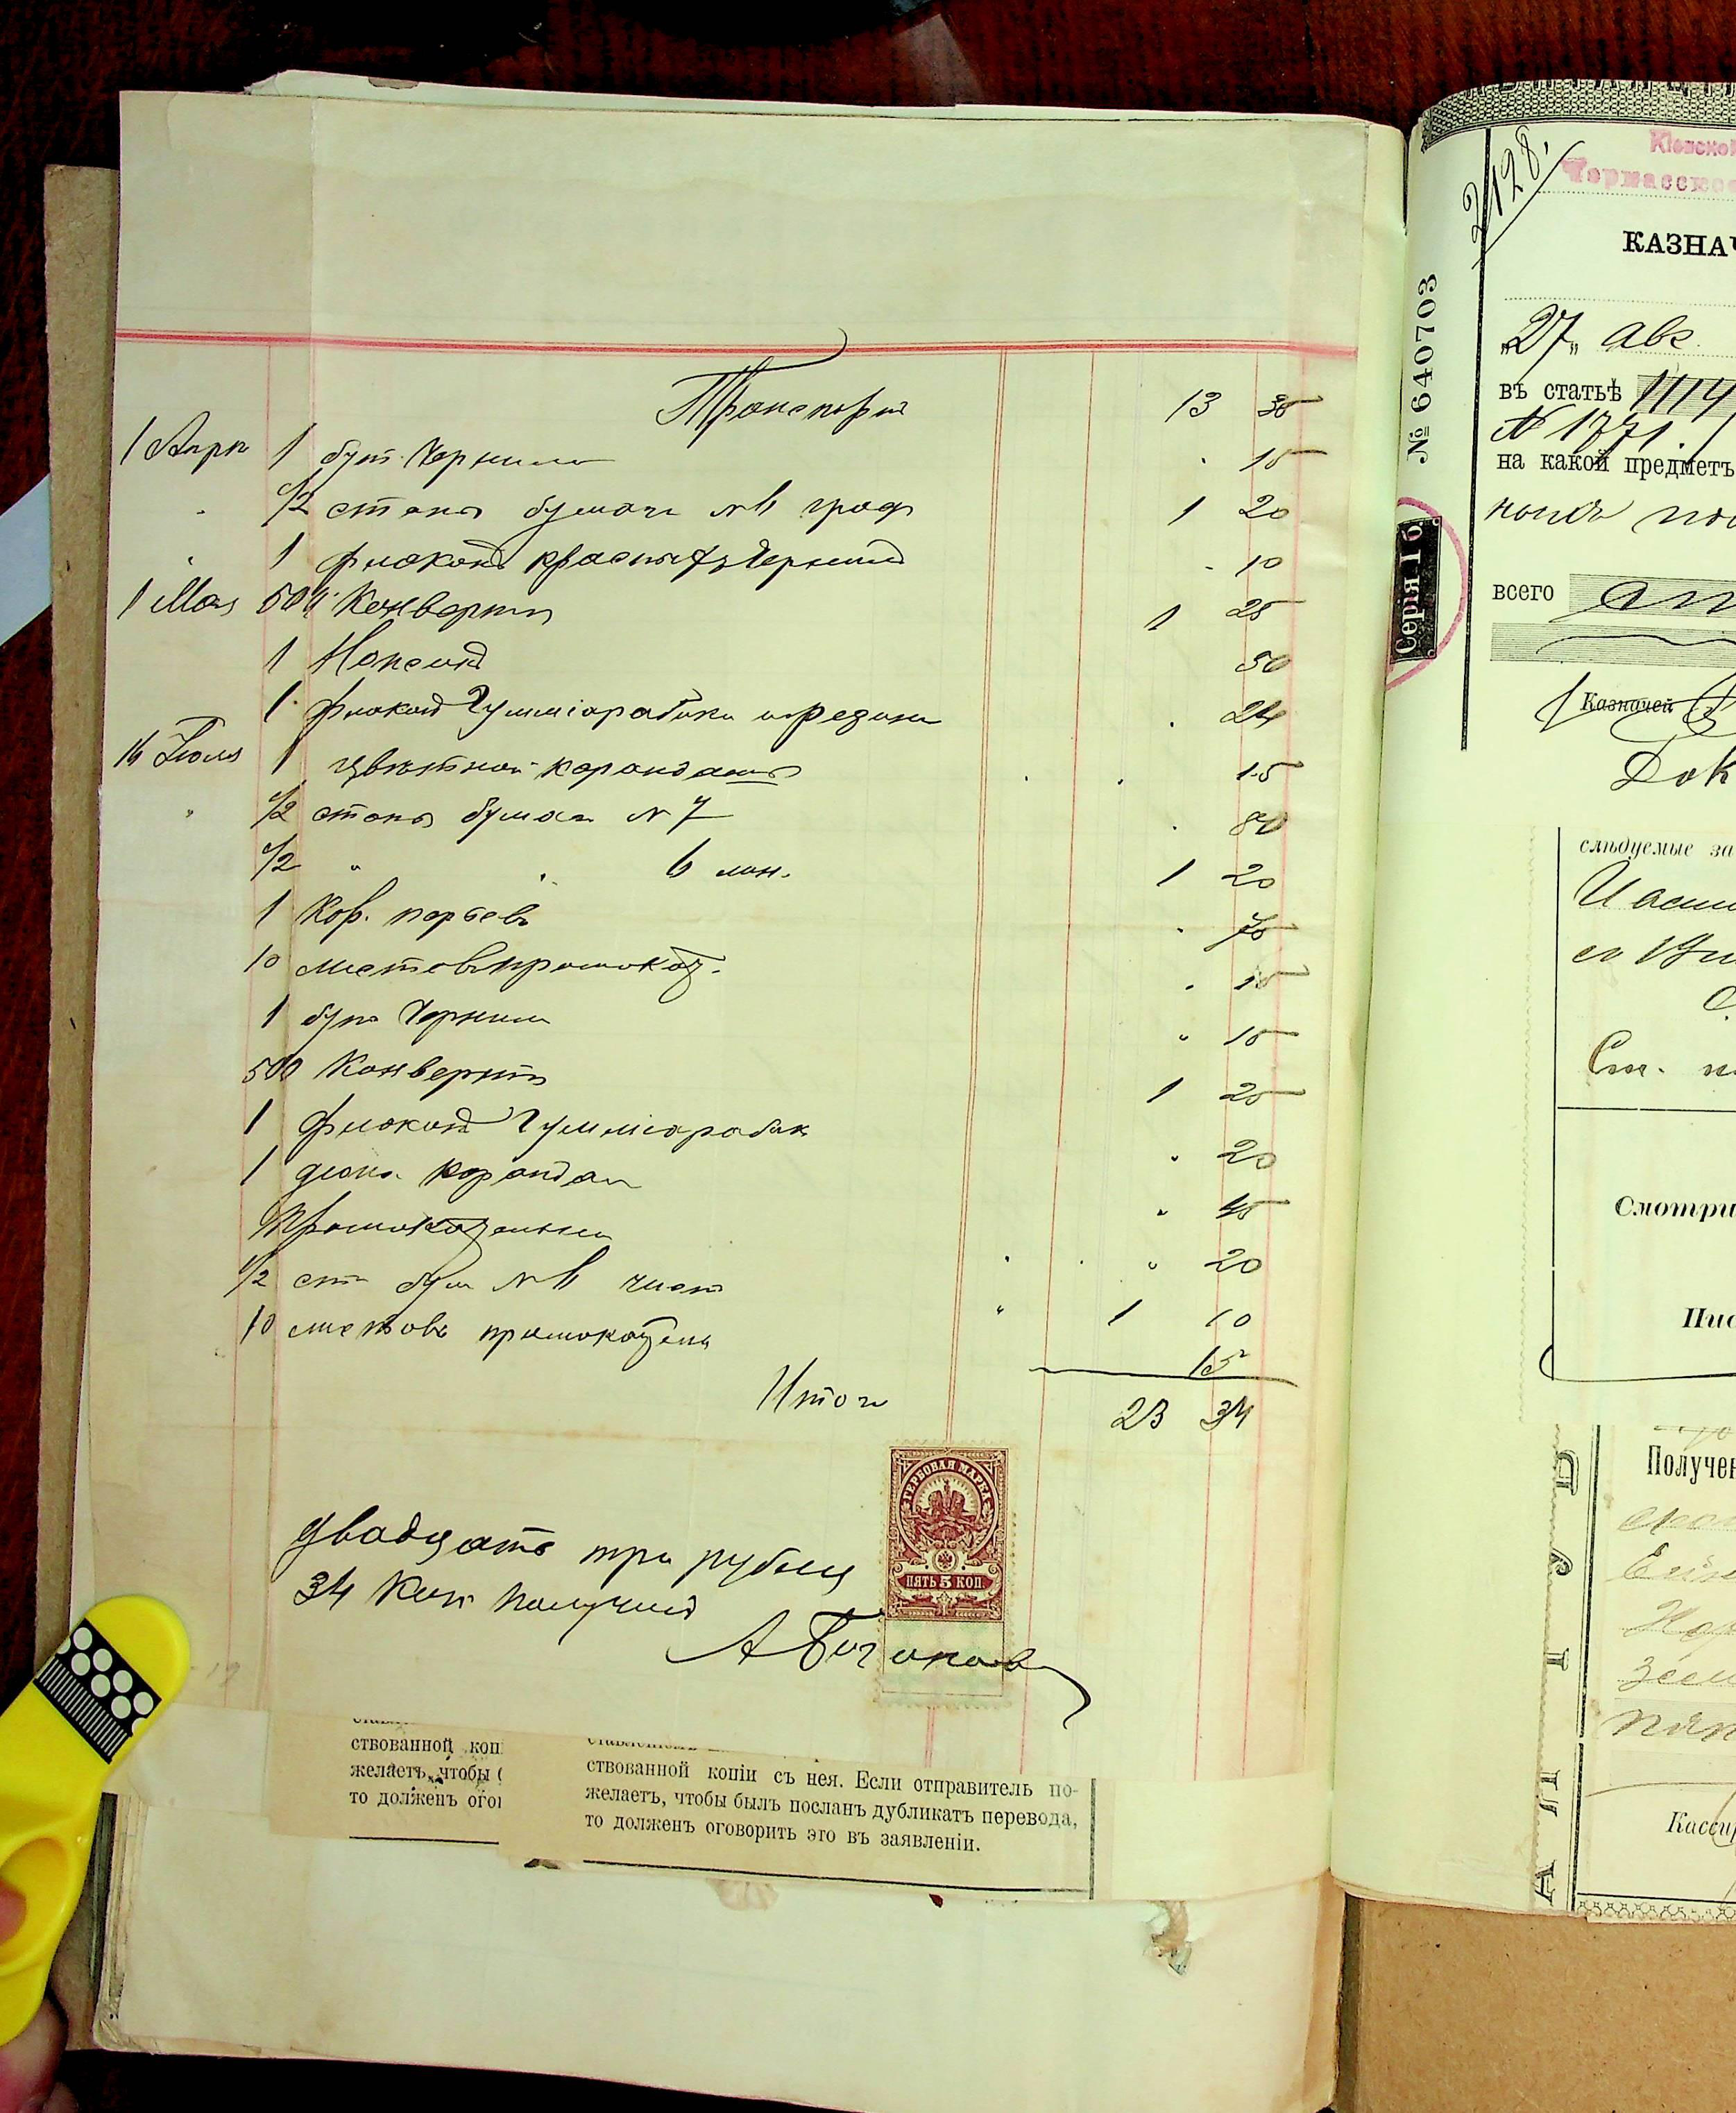 Транспортъ 13 35
1 Апрѣ 1 бут. Чернила . 15
. 1/2 стопы бумаги №6 граф 1 20
. 1 флаконъ красныхъ Чернилъ . 10
1 Мая 500 Конвертъ 1 25
1 50
1. флаконъ Гуммiарабика и резина . 24
14 Iюля 1 цвѣтной карандашъ . . 15
" 1/2 стопы бумаги № 7 . 80
1/2 " " 6 лин. 1 20
1 Кор. перьевъ .
10 листовъ промокат. . 15
1 бут Чернила " 15
500 Конвертъ 1 25
1 флаконъ Гуммiарабик " 20
1 дюж. карандаш " 45
Промокательная . . " 20
1/2 ст бум №6 чист " 1 10
10 листовъ промокатель 15
Итого 23 34
ГЕРБОВАЯ МАРКА
ПЯТЬ 5 КОП.
двадцать три рубля
34 Коп получилъ
ствованной коп
желаетъ, чтобы
то долженъ огог
ствованной копіи съ нея. Если отправитель по-
желаетъ, чтобы былъ посланъ дубликатъ перевода,
то долженъ оговорить это въ заявленіи.
2128.
Кіевской
Черкасское
КАЗНАЧ
№ 640703
Серія I б.
"27" авг.
въ статьѣ 1114
№ 1771.
на какой предметъ
всего
Казначей
слѣдуемые за
См.
Смотри
Пис
Получен
Касси